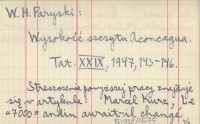 W. H. Paryski:
Wysokość szczytu Aconcagua.
Tat. XXIX, 1947, 143-146.
Streszczenie powyższej pracy znajduje
się w artykule: Marcel Kurz, Le
"7000" andin aurait-il changé